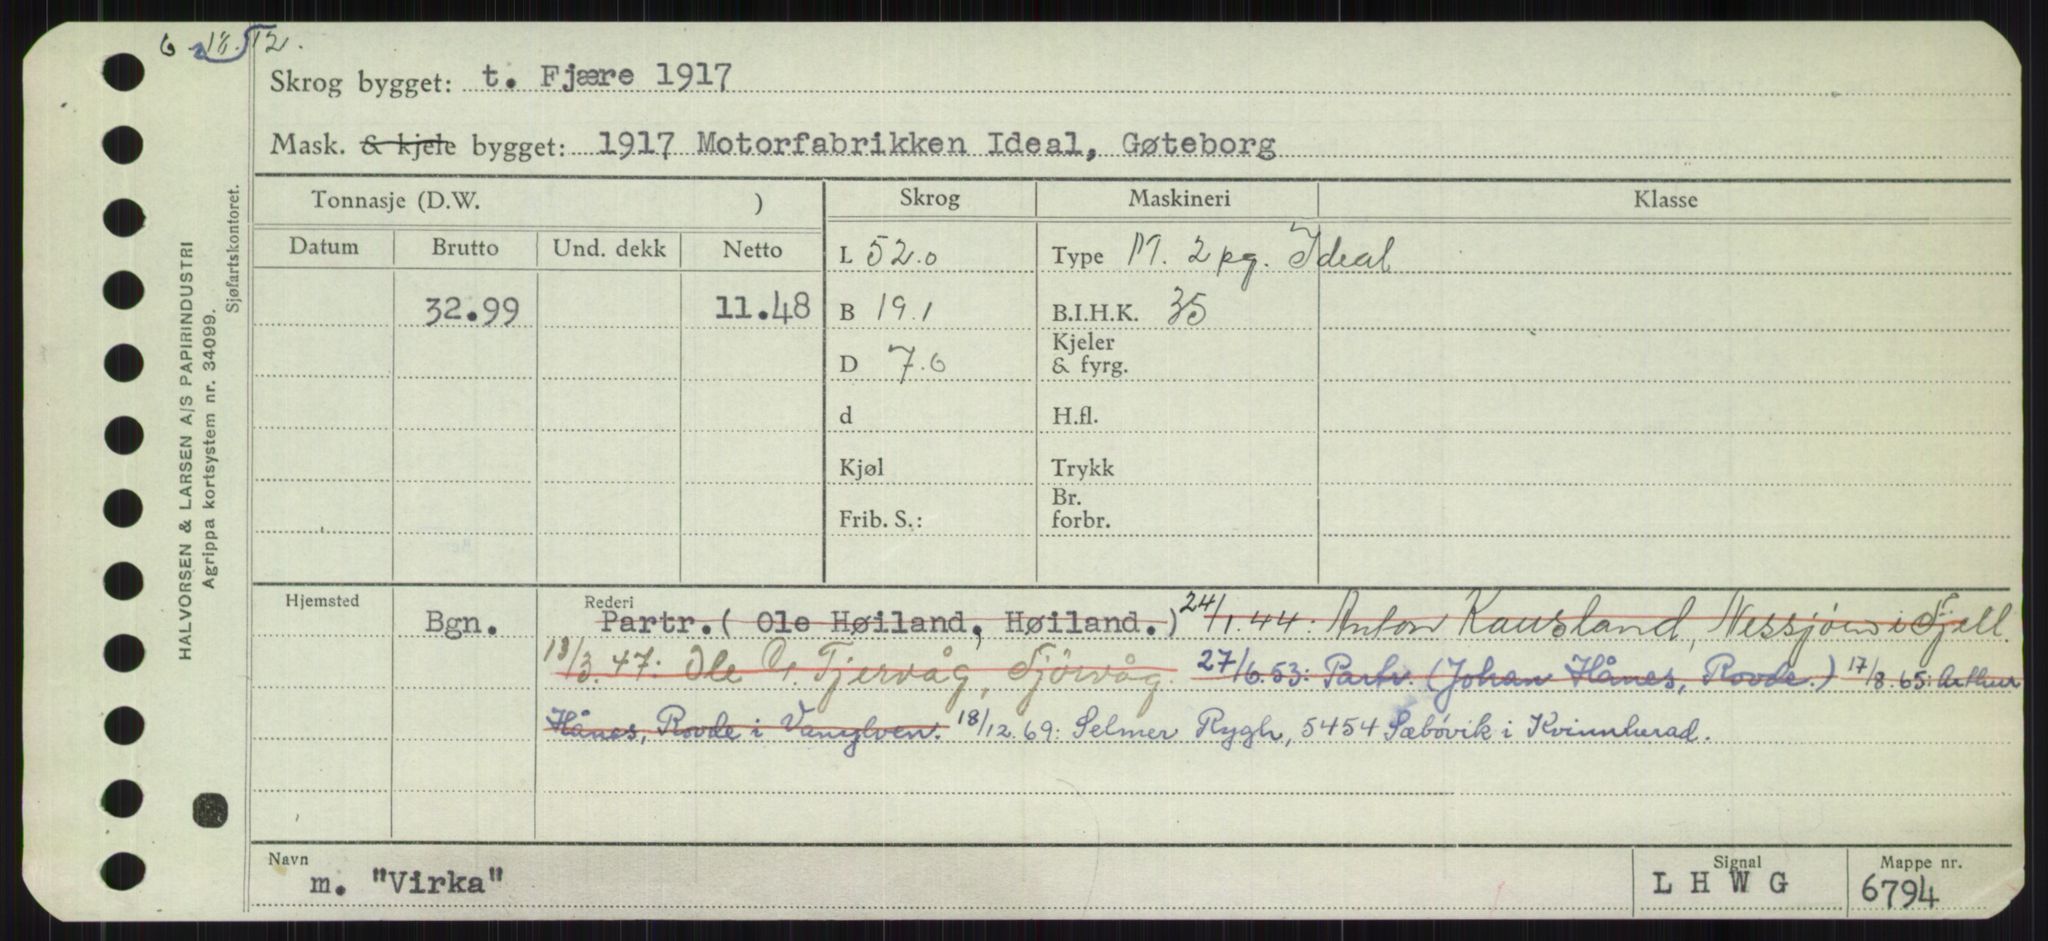 6 18.12.
Skrog bygget: t. Fjære 1917
Mask. & kjele bygget: 1917 Motorfabrikken Ideal, Gøteborg
HALVORSEN & LARSEN A/S PAPIRINDUSTRI
Agrippa kortsystem nr. 34099.
Sjøfartskontoret.
Tonnasje (D.W. ) Skrog Maskineri Klasse
Datum Brutto Und. dekk Netto L 52.0 Type M. 2 pg. Ideal
32.99 11.48 B 19.1 B.I.H.K. 35
D 7.6 Kjeler & fyrg.
d H.fl.
Kjøl Trykk
Frib. S.: Br. forbr.
Hjemsted Rederi
Bgn. Partr.( Ole Høiland, Høiland.) 24/1.44: Anton Kausland, Nessjøen i Fjell.
18/3.47: Ole A. Fjervåg, Sjøvåg. 27/6.53: Partr. (Johan Hånes, Rovde.) 17/8.65: Arthur
Hånes, Rovde i Vanylven. 18/12.69: Selmer Rygh, 5454 Sæbøvik i Kvinnherad.
Navn Signal Mappe nr.
m. "Virka" L H W G 6794